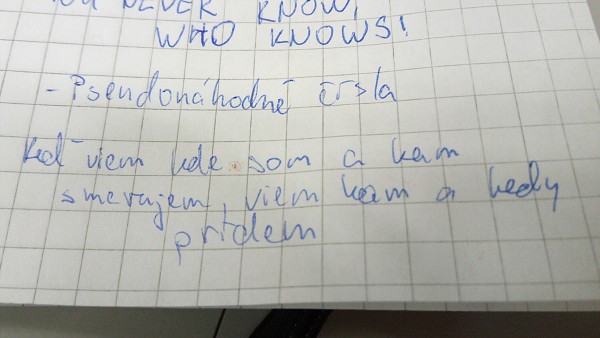 YOU NEVER KNOW,
WHO KNOWS!
- Pseudonáhodné čísla
Keď viem kde som a kam
smerujem, viem kam a kedy
prídem